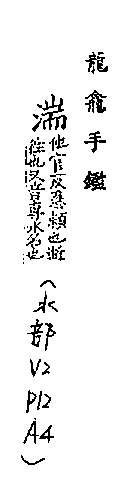 龍龕手鑑
湍
他官反急頼也
徃也又音專水名也
(水部 V2 P12 A4)